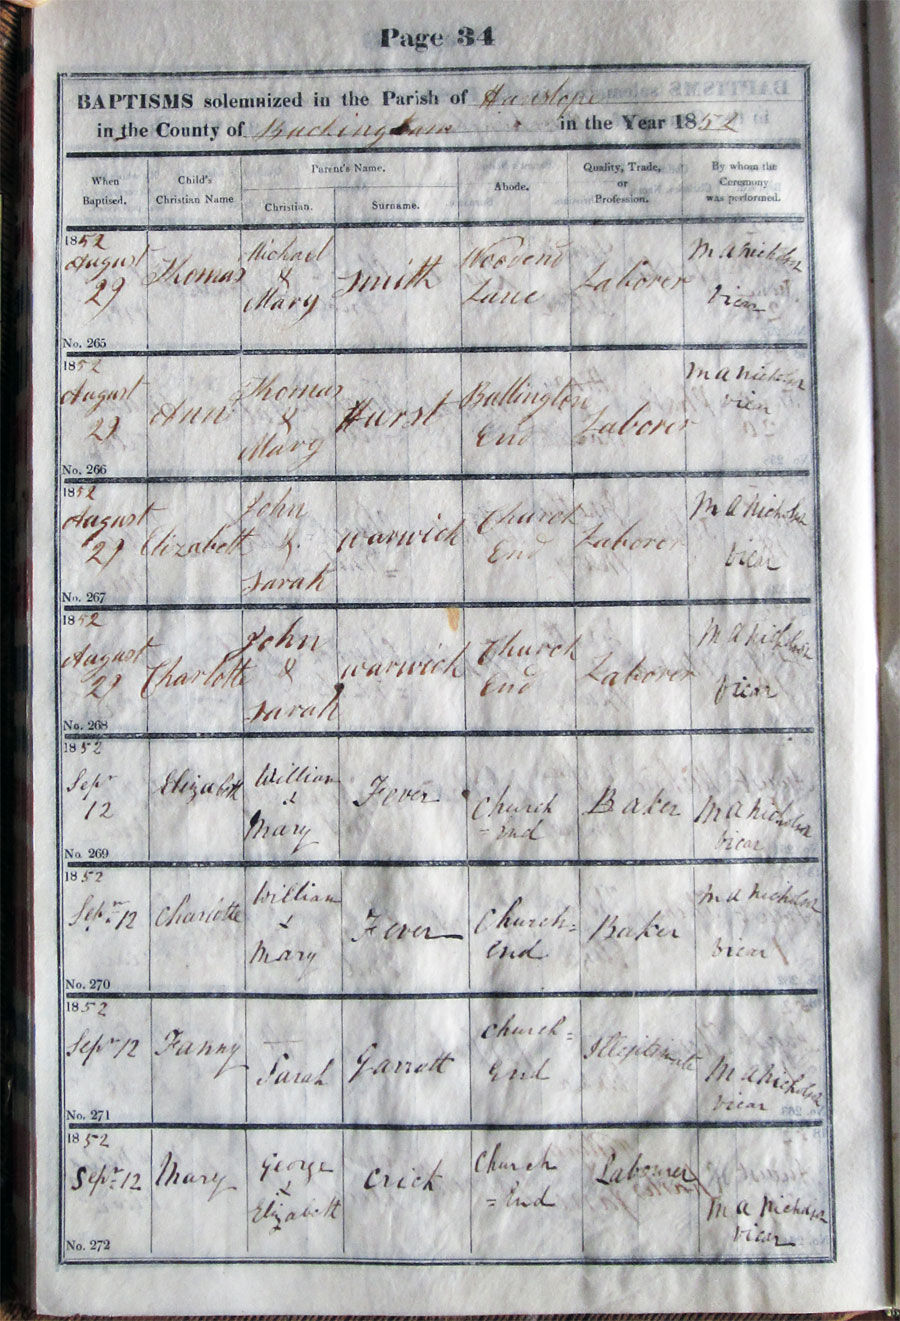 Page 34
BAPTISMS solemnized in the Parish of Hanslope
in the County of Buckingham in the Year 1852
When Baptised.
Child's Christian Name
Parent's Name.
Christian.
Surname.
Abode.
Quality, Trade, or Profession.
By whom the Ceremony was performed.
1852
August 29
No. 265
Thomas
Michael & Mary
Smith
Woodend Lane
Laborer
M A Nicholson Vicar
1852
August 29
No. 266
Ann
Thomas & Mary
Hurst
Bullington End
Laborer
M A Nicholson Vicar
1852
August 29
No. 267
Elizabeth
John & Sarah
Warwick
Church End
Laborer
M A Nicholson Vicar
1852
August 29
No. 268
Charlotte
John & Sarah
Warwick
Church End
Laborer
M A Nicholson Vicar
1852
Sepr 12
No. 269
Elizabeth
William & Mary
Fever
Church = End
Baker
M A Nicholson Vicar
1852
Sepr 12
No. 270
Charlotte
William & Mary
Fever
Church = End
Baker
M A Nicholson Vicar
1852
Sepr 12
No. 271
Fanny
Sarah
Garratt
Church = End
Illegitimate
M A Nicholson Vicar
1852
Sepr 12
No. 272
Mary
George & Elizabeth
Crick
Church = End
Labourer
M A Nicholson Vicar